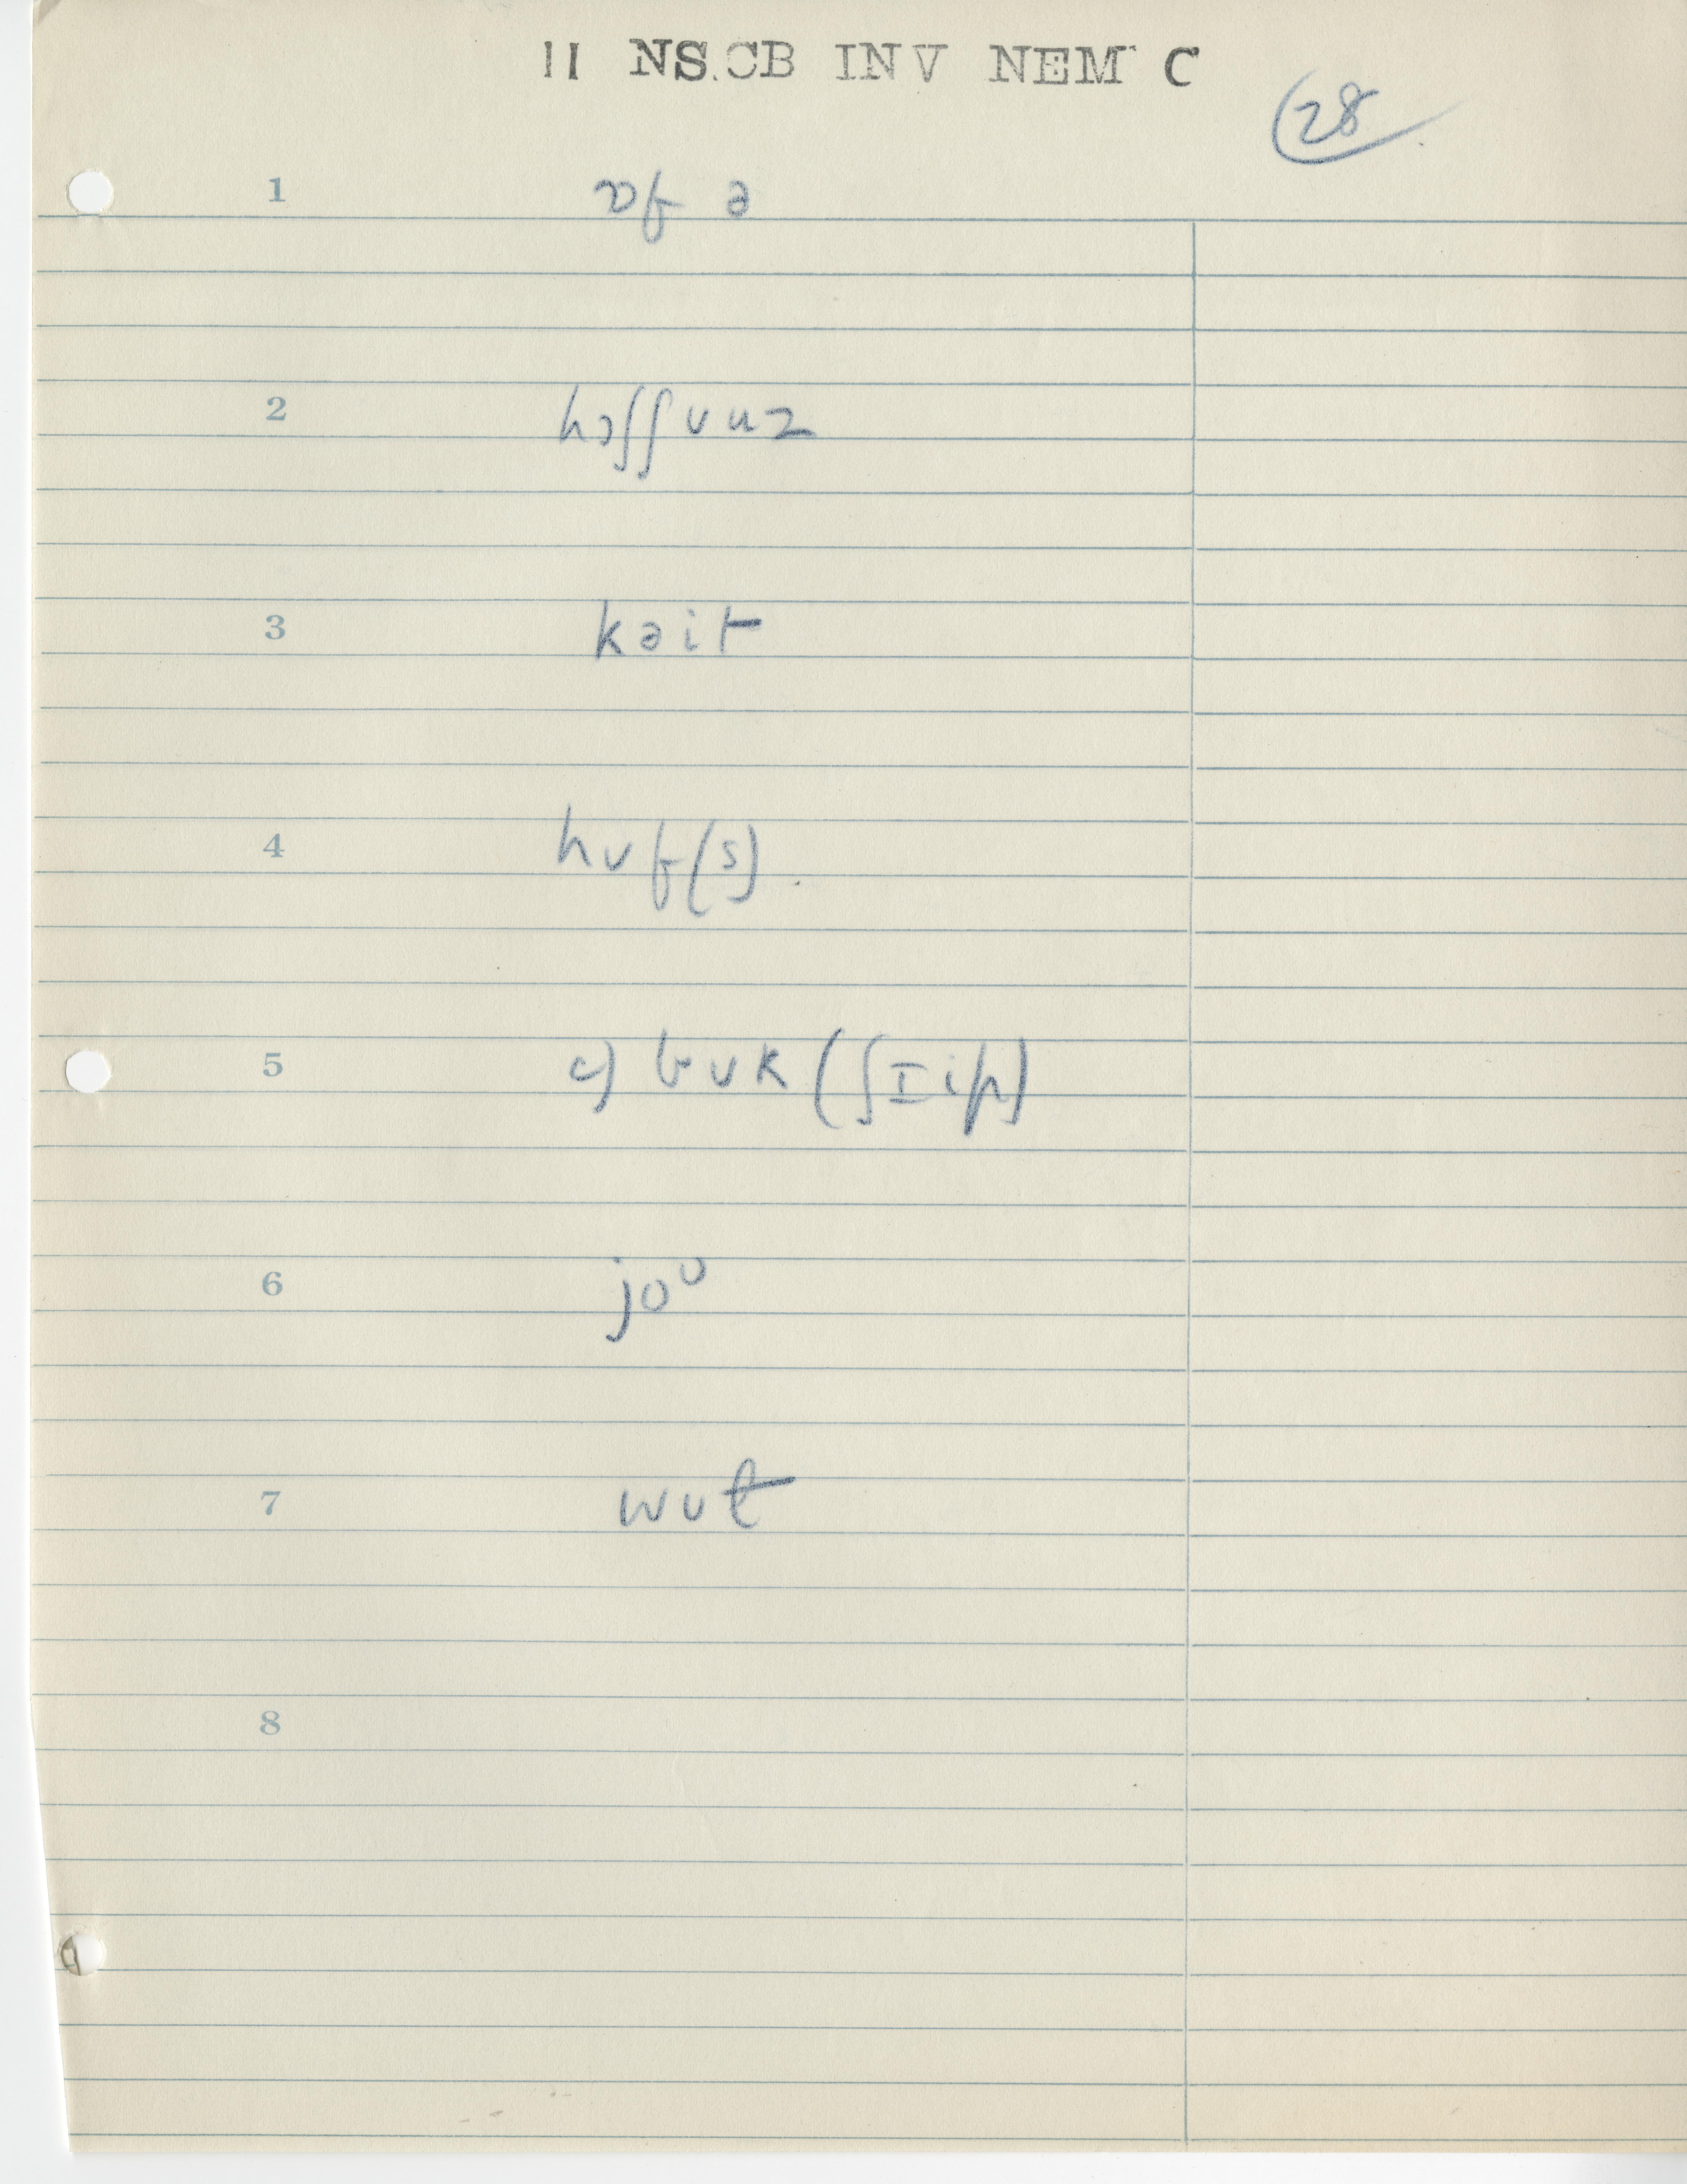 11 NS.CB INV NEM C
28
1 ɒf ə
2 hɔʃʃʊuz
3 kəit
4 hʊf(s)
5 c) bʊk (ʃɪip)
6 joᶷ
7 wʊt
8